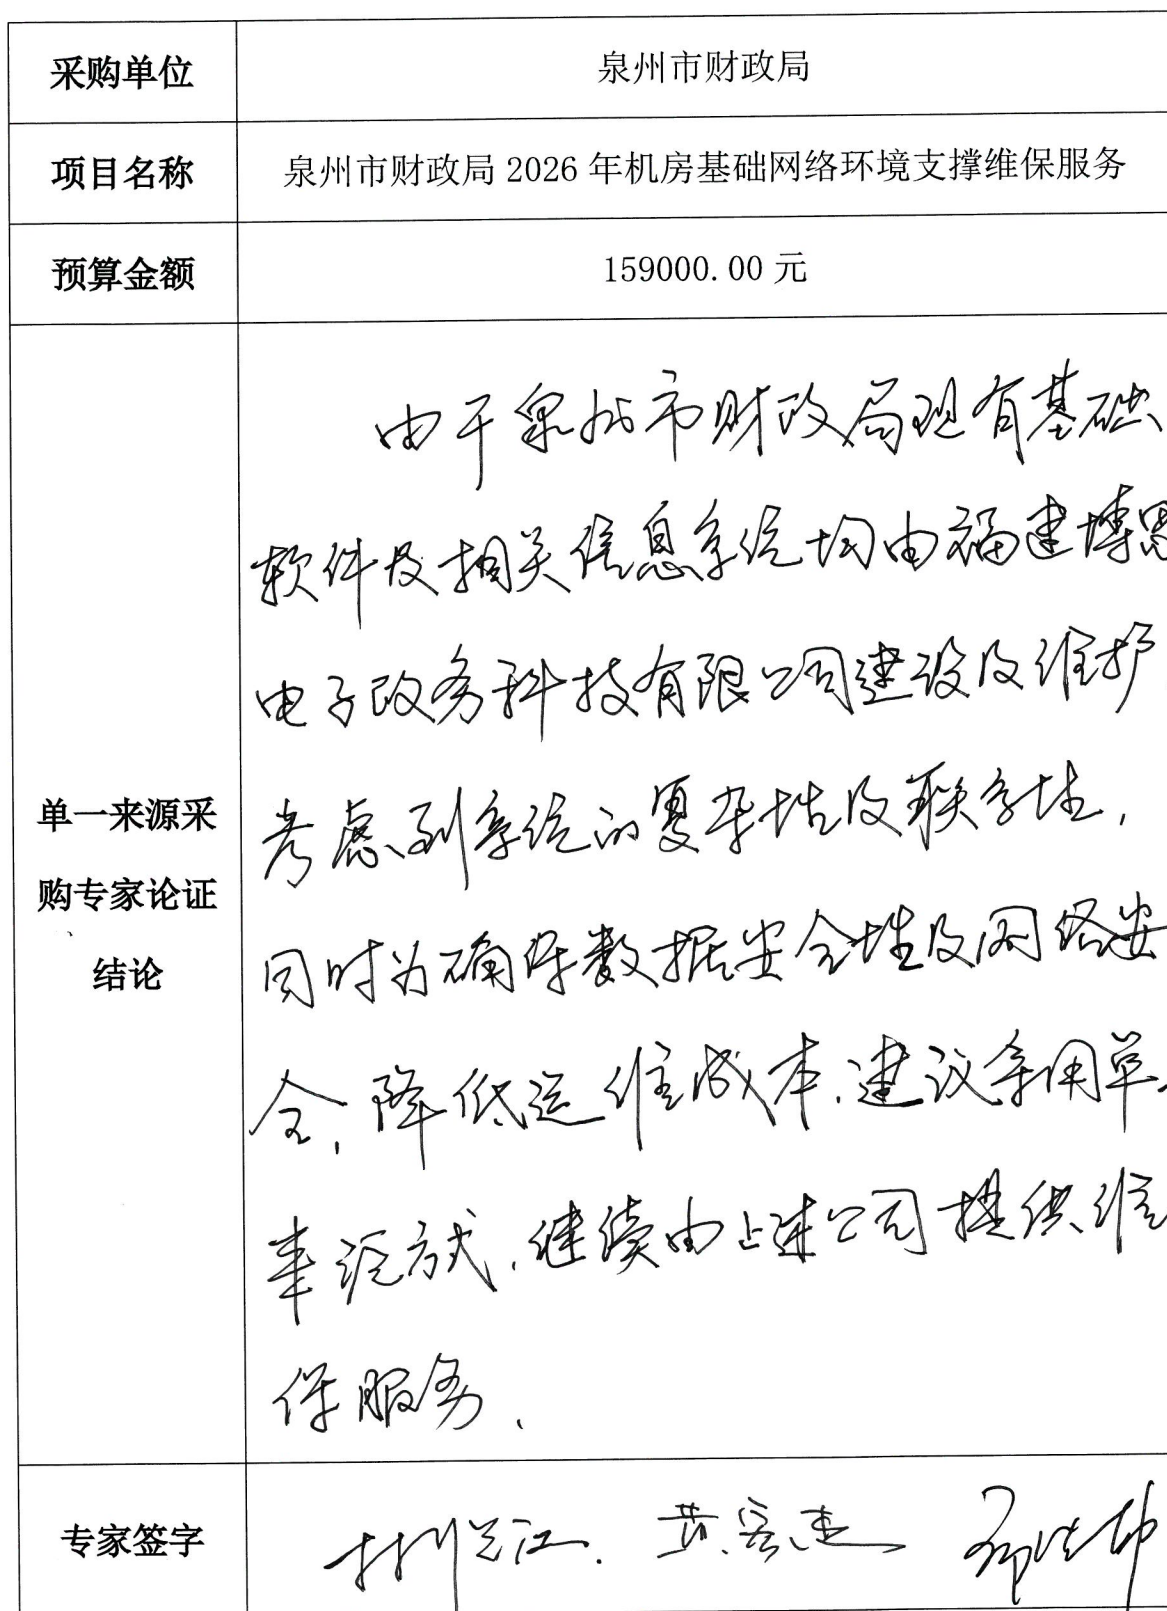 采购单位
泉州市财政局
项目名称
泉州市财政局 2026 年机房基础网络环境支撑维保服务
预算金额
159000.00 元
单一来源采
购专家论证
结论
由于泉州市财政局现有基础
软件及相关信息系统均由福建博思
电子政务科技有限公司建设及维护
考虑到系统的复杂性及联系性,
同时为确保数据安全性及网络安
全,降低运维成本,建议采用单一
来源方式,继续由上述公司提供维
保服务.
专家签字